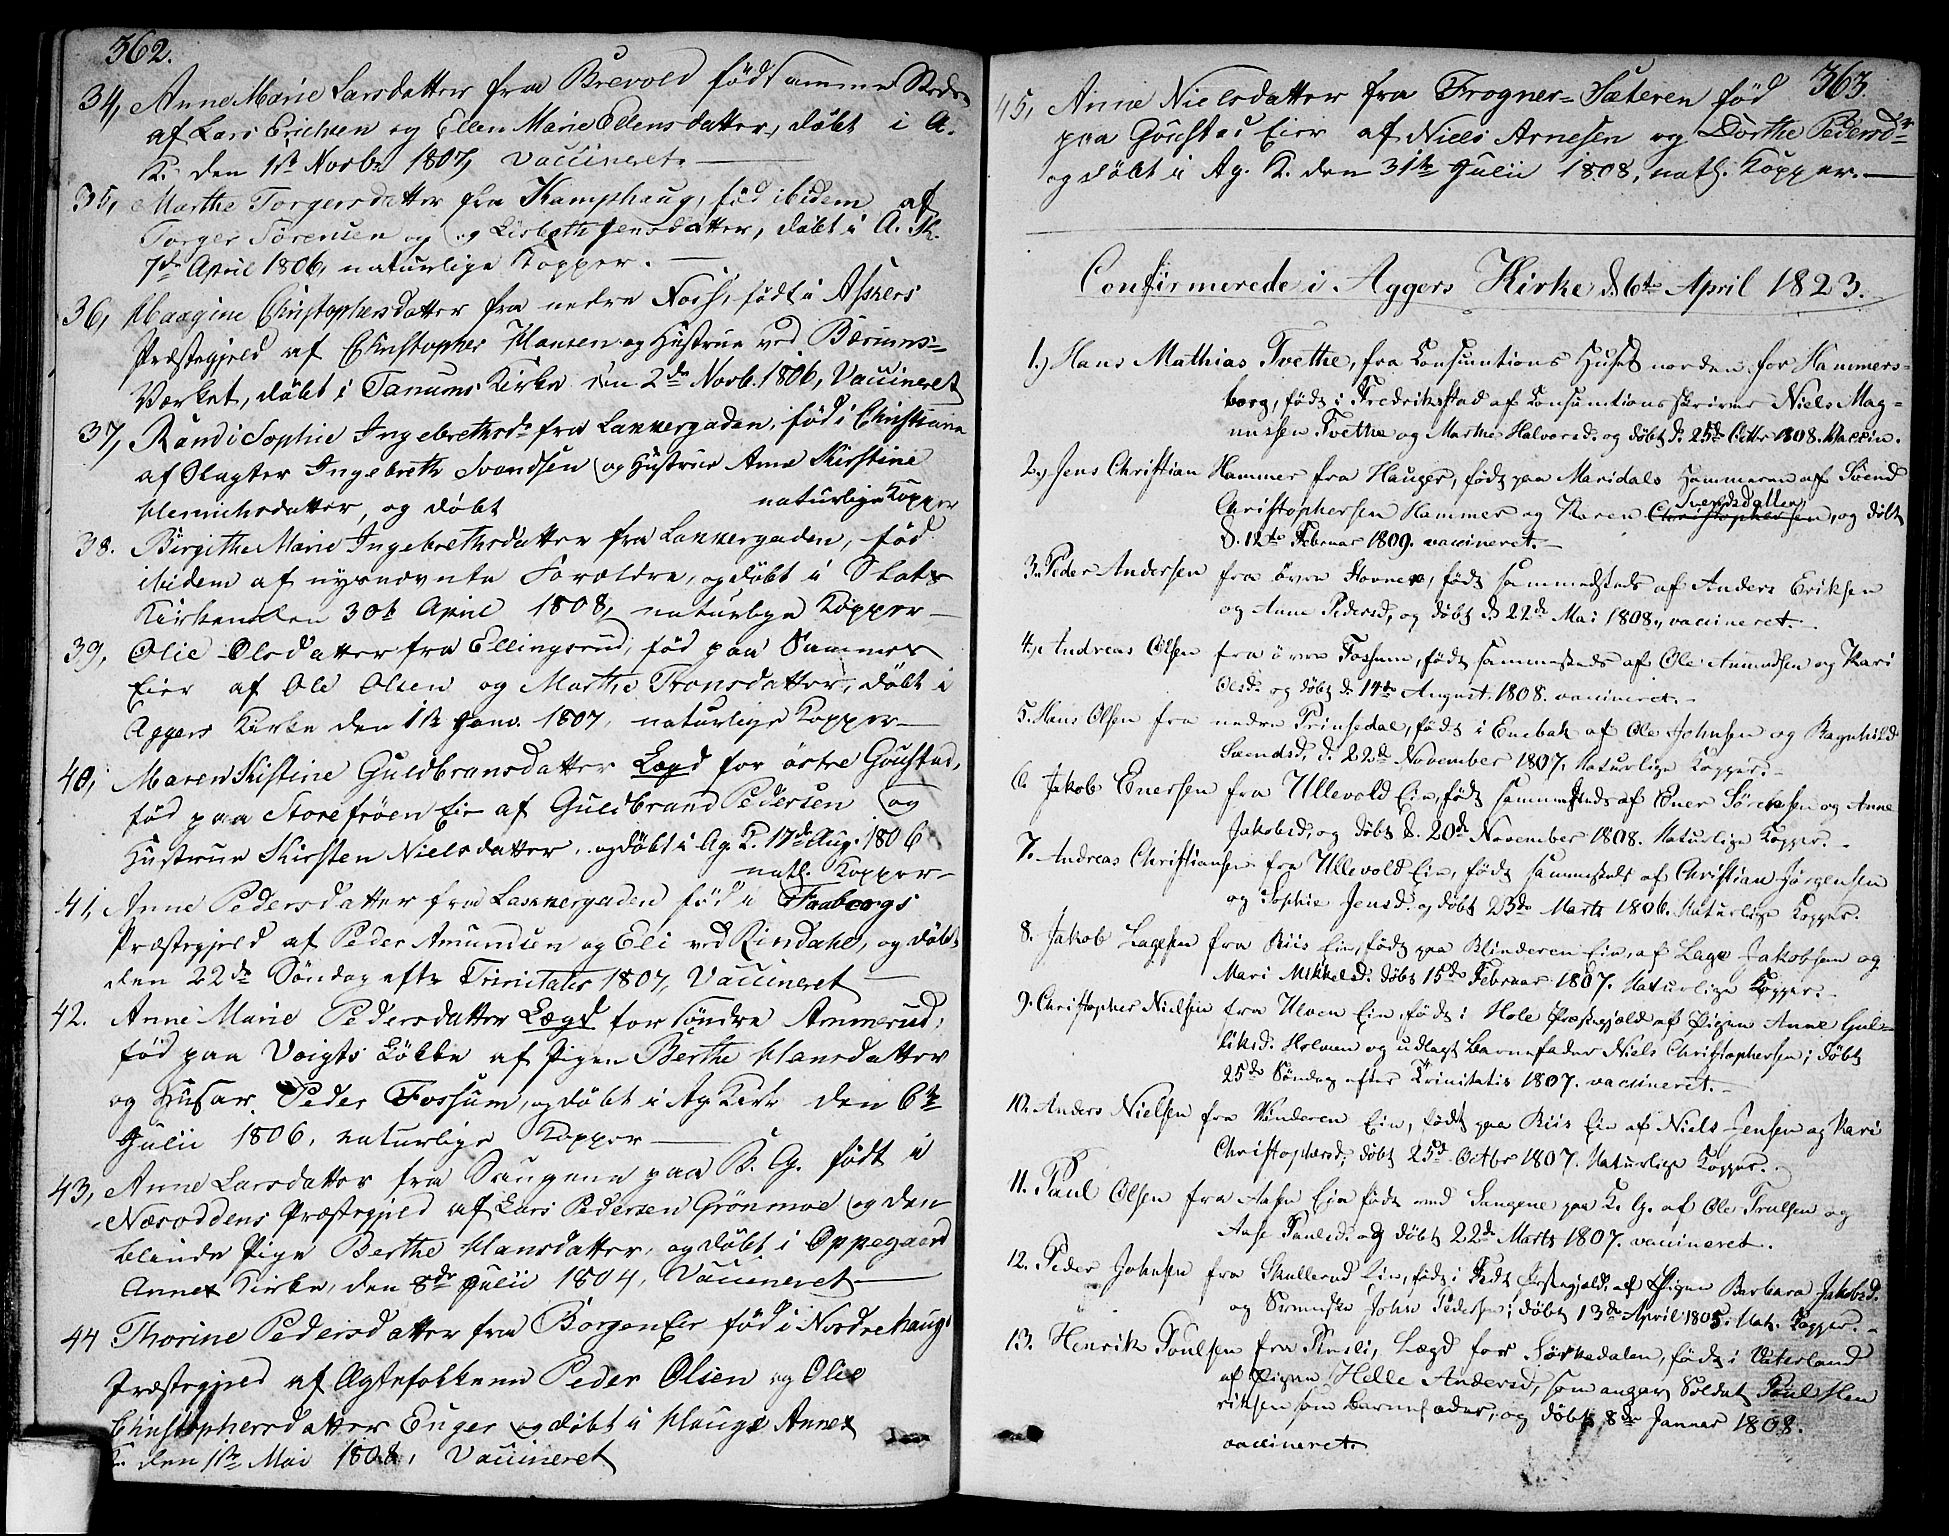 362.
34, Anne Marie Larsdatter fra Brevold född samme Steds
af Lars Erichsen og Ellen Marie Ellensdatter, døbt i A.
K. den 1te Novbr 1807, Vaccineret.
35, Marthe Torgersdatter fra Kamphaug, föd ibidem af
Torger Sörensen og Lisbeth Jensdatter, döbt i A. K.
7de April 1806, naturlige Kopper.
36, Maagine Christophersdatter fra nedre Noes, födt i Askers
Præstegjeld af Christopher Hansen og Hustrue ved Bærums-
Værket, döbt i Tanums Kirke den 2de Novb. 1806, Vaccineret
37, Randi Sophie Ingebrethsdr fra Lakkergaden, föd i Christiania
af Slagter Ingebreth Svendsen og Hustrue Anne Kirstine
Henrichsdatter, og döbt naturlige Kopper
38. Birgithe Marie Ingebrethsdatter fra Lakkergaden, föd
ibidem af nysnævnte Forældre, og döbt i Slots
Kirken den 30te April 1808, naturlige Kopper
39, Olie Olsdatter fra Ellingsrud, föd paa Sammes
Eier af Ole Olsen og Marthe Tronsdatter, döbt i
Aggers Kirke den 1te Janv. 1807, naturlige Kopper
40, Maren Kistine Guldbransdatter Lægd for östre Goustad,
föd paa Storefröen Eie af Guldbrand Pedersen og
Hustrue Kirsten Nielsdatter, og döbt i Ag. K. 17de Aug. 1806
natl. Kopper
41, Anne Pedersdatter fra Lakkergaden föd i Faabergs
Præstegjeld af Peder Amundsen og Eli ved Rindahl, og döbt
den 22de Söndag efter Trinitatis 1807, Vaccineret
42. Anne Marie Pedersdatter Lægd for Söndre Ammerud,
föd paa Voigts Lökke af Pigen Berthe Hansdatter
og Husar Peder Fossum, og döbt i Ag Kirke den 6te
Julii 1806, naturlige Kopper
43, Anne Larsdatter fra Saugene paa K. G. födt i
Næsoddens Præstegjeld af Lars Pedersen Grönmoe og den
blinde Pige Berthe Hansdatter, og döbt i Oppegaard
Annex Kirke, den 8de Julii 1804, Vaccineret
44 Thorine Pedersdatter fra Borgen Eie föd i Nordrehaugs
Præstegjeld af Ægtefolkene Peder Olsen og Olie
Christophersdatter Enger og döbt i Haugs Annex
K. den 1te Mai 1808, Vaccineret
363.
45, Anne Nielsdatter fra Frogner-Sæteren föd
paa Goustad Eier af Niels Arnesen og Dorthe Pedersdr
og döbt i Ag. K. den 31te Julii 1808, natl. Kopper.
Confirmerede i Aggers Kirke d. 6te April 1823.
1.) Hans Mathias Tvethe, fra Consumtions Huset norden for Hammers-
borg, födt i Fredrikstad af Consumtionsskriver Niels Mag-
nussen Tvethe og Marthe Halversd. og döbt d. 25de Octbr 1808. Vaccin.
2.) Jens Christian Hammer fra Hauger, födt paa Maridals Hammeren af Svend
Christophersen Hammer og Karen Christophersen, og döbt
Svendsdatter
d. 12te Februar 1809. vaccineret.
3. Peder Andersen fra övre Hovne, födt sammesteds af Anders Eriksen
og Anne Pedersd, og döbt d. 22de Mai 1808, vaccineret.
4. Andreas Olsen fra övre Fossum, födt sammesteds af Ole Amundsen og Kari
Olsd. og döbt d. 14te August 1808. vaccineret.
5. Hans Olsen fra nedre Prinsedal, födt i Enebak af Ole Johnsen og Ragnhild
Svendsd, d. 22de November 1807. Naturlige Kopper.
6. Jakob Enersen fra Ullevold Eie, födt sammesteds af Ener Sörensen og Anne
Jakobsd, og döbt d. 20de November 1808. Naturlige Kopper.
7. Andreas Christiansen fra Ullevold Eie, födt sammesteds af Christian Jörgensen
og Sophie Jensd. og döbt 23de Marts 1806. Naturlige Kopper.
8. Jakob Lagesen fra Riis Eie, födt paa Blinderen Eie, af Lage Jakobsen og
Mari Mikkelsd: döbt 15de Februar 1807. Naturlige Kopper.
9. Christopher Nielsen fra Ulven Eie, födt i Hole Præstegjeld af Pigen Anne Gul-
liksd. Holmen og udlagt Barnefader Niels Christophersen; döbt
25de Söndag efter Trinitatis 1807. vaccineret.
10. Anders Nielsen fra Vinderen Eie, födt paa Riis Eie af Niels Jensen og Kari
Christophersd; döbt 25de Octbr 1807. Naturlige Kopper.
11. Paul Olsen fra Aasen Eie födt ved Saugene paa K. G. af Ole Trulsen og
Aase Paulsd. og döbt 22de Marts 1807. vaccineret.
12. Peder Johnsen fra Skullerud Eie, födt i Fedt Præstegjeld, af Pigen Barbara Jakobsd.
og Svenske John Pedersen; döbt 13de April 1805. Nat. Kopper.
13. Henrik Poulsen fra Linli, Lægd for Sörkedalen, födt i Vaterland
af Pigen Helle Andersd, som angav Soldat Poul Hen
riksen som Barnefader, og döbt 8de Januar 1808.
vaccineret.